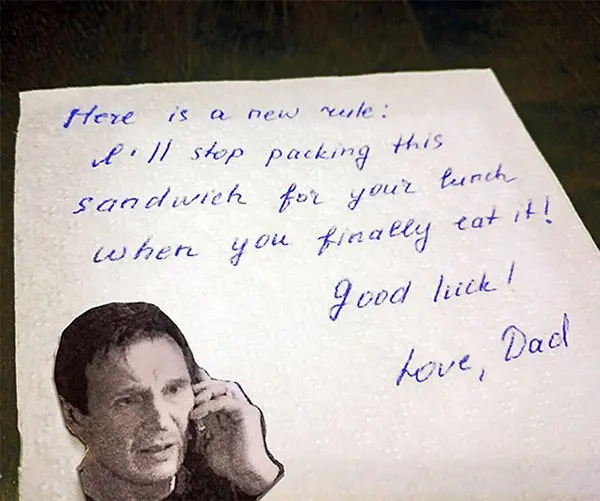 Here is a new rule:
I'll stop packing this
sandwich for your lunch
when you finally eat it!
Good luck!
Love, Dad